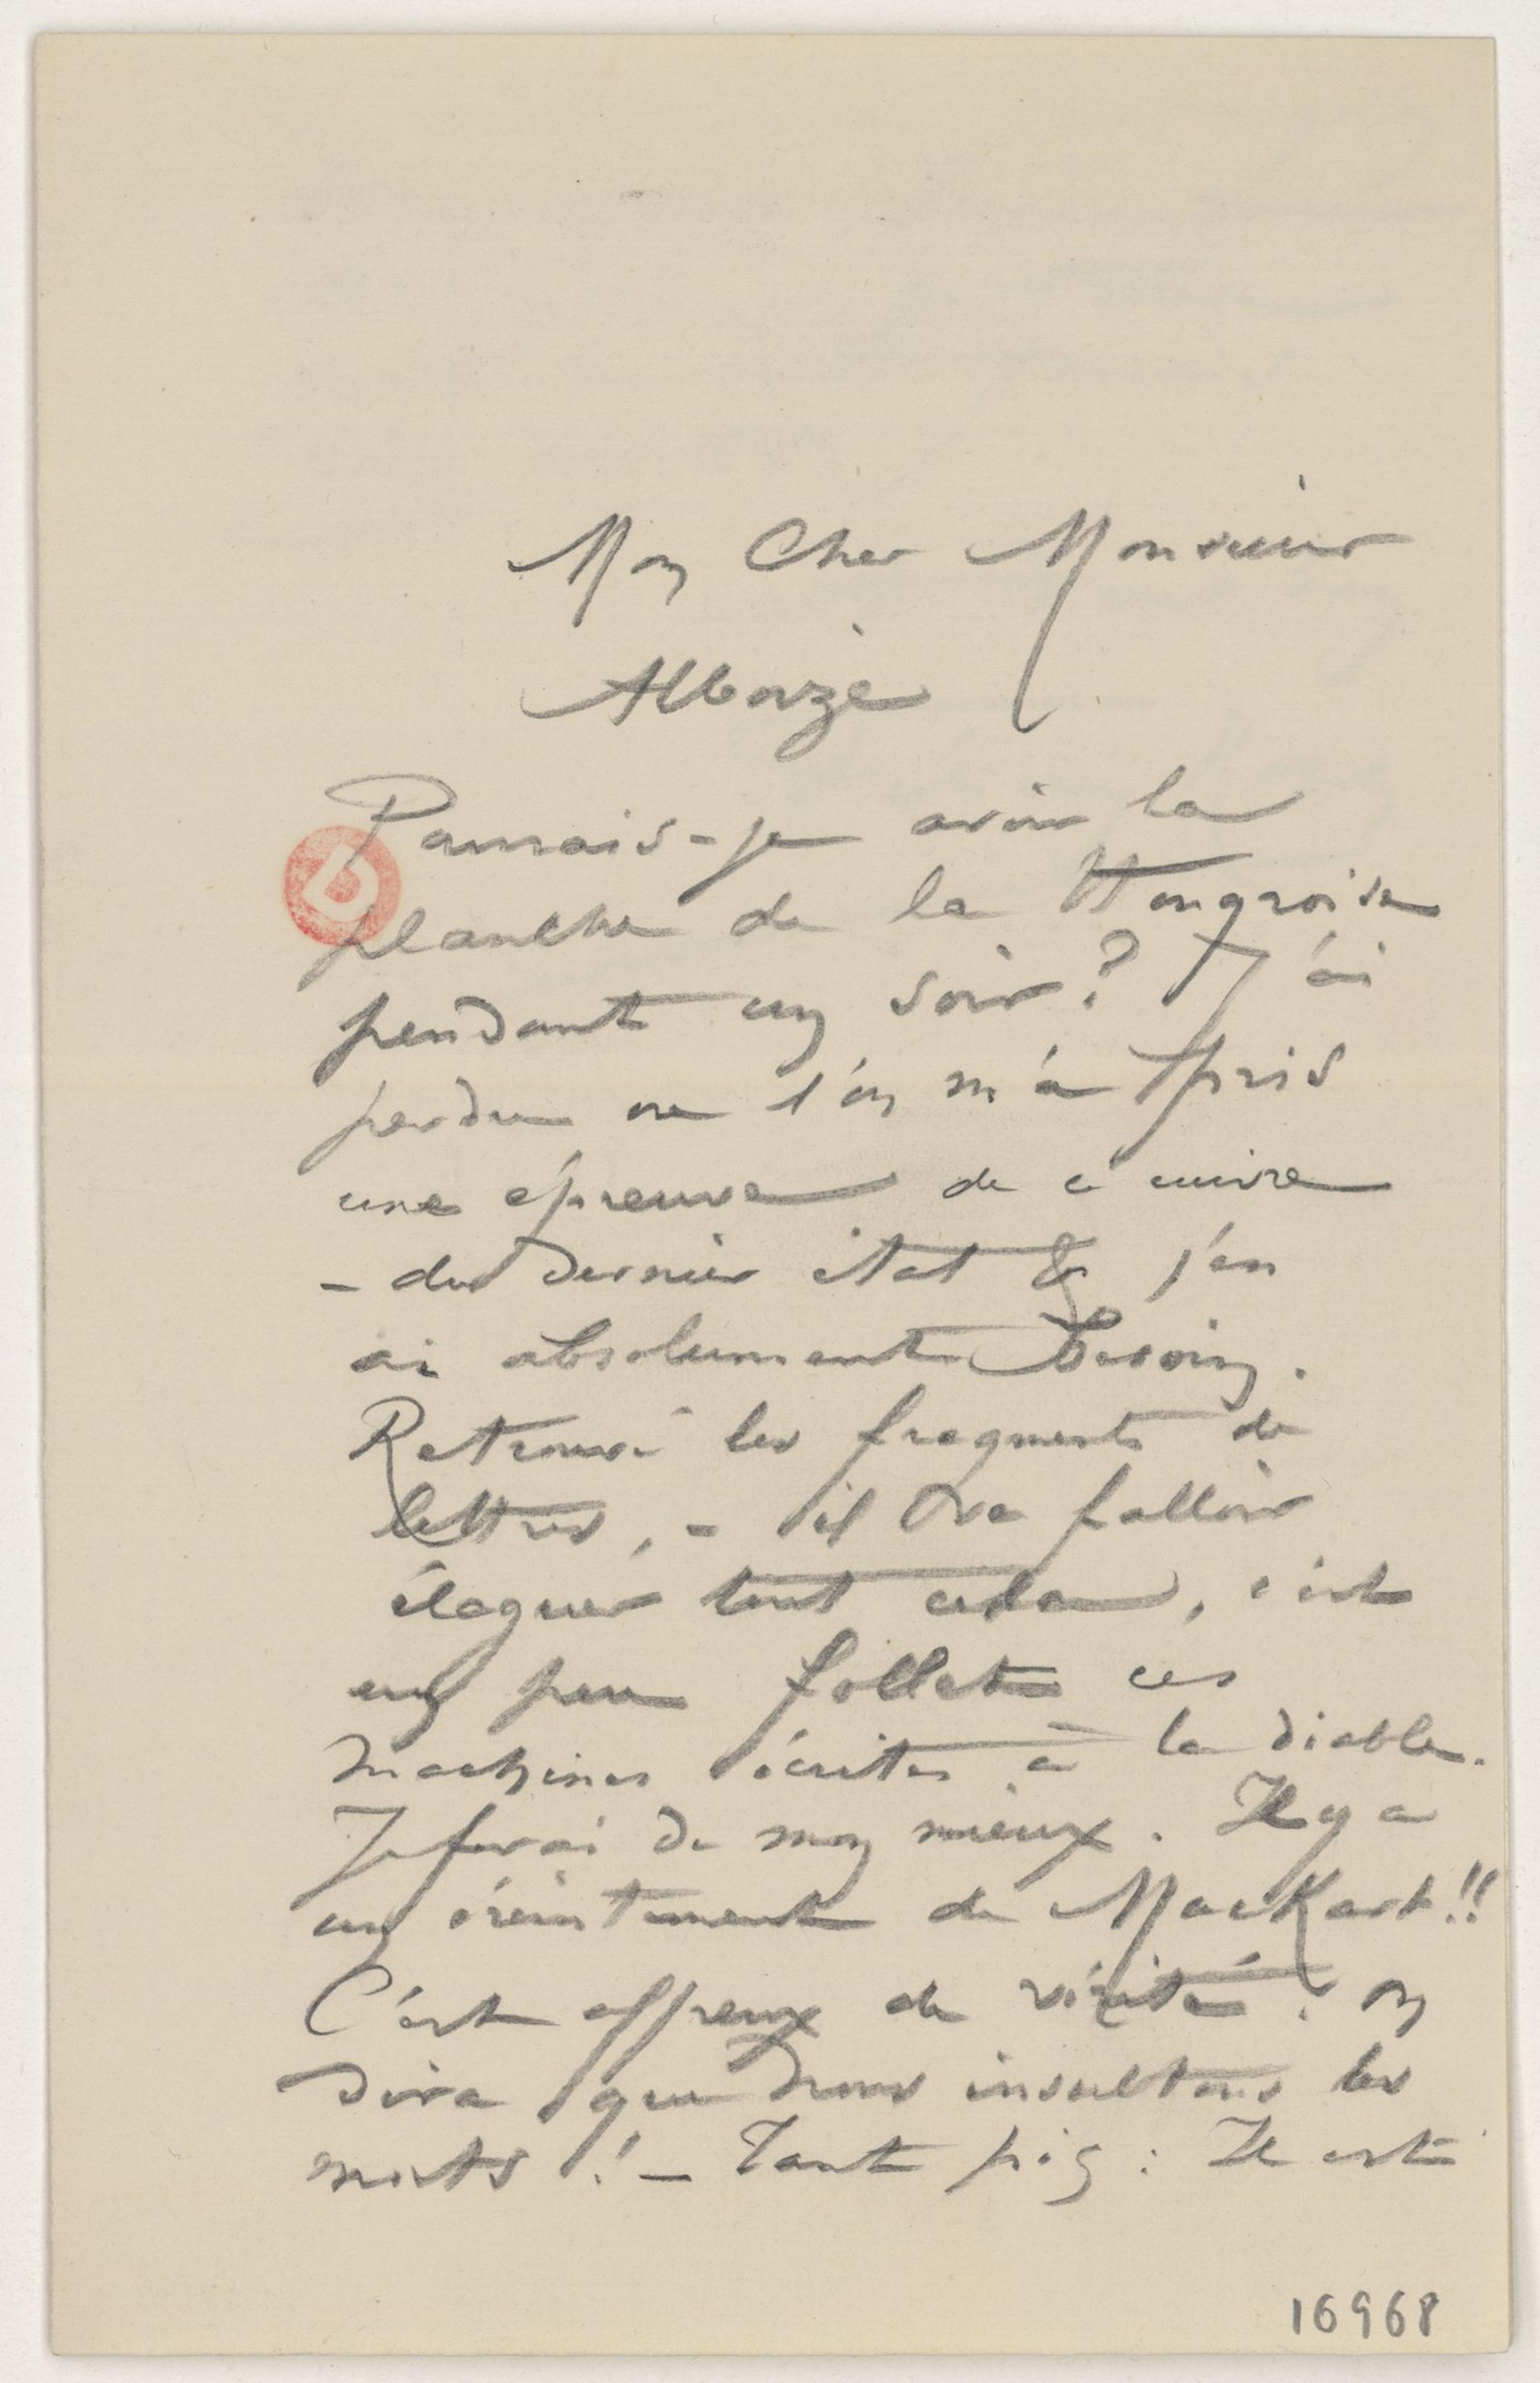 Mon Cher Monsieur
Alboize
Pourrais-je avoir la
planche de la Hongroise
pendant un soir? J'ai
perdu ou l'on m'a pris
une épreuve de ce cuivre
- du dernier état & j'en
ai absolument besoin.
Retrouvé les fragments de
lettres, - il va falloir
élaguer tout cela, c'est
un peu follet ces
machines écrites à la diable.
Je ferai de mon mieux. Il y a
un éreintement de MacKart!!
C'est affreux de vérité: on
dira que nous insultons les
morts! - Tant pis: Il est
16968